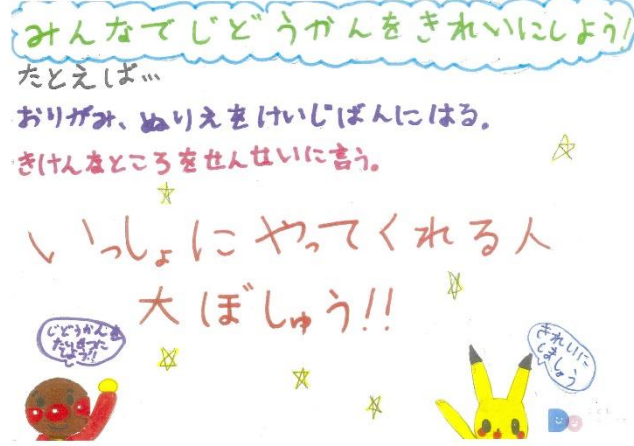 みんなでじどうかんをきれいにしよう!
たとえば…
おりがみ、ぬりえをけいじばんにはる。
きけんなところをせんせいに言う。
いっしょにやってくれる人
大ぼしゅう!!
じどうかんを
しよう!!
きれいに
しましょう